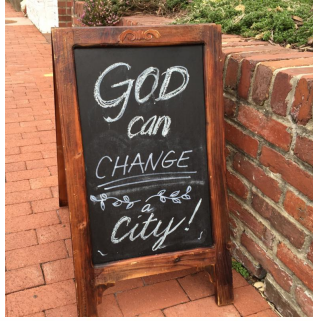 GOD
can
CHANGE
a
city!